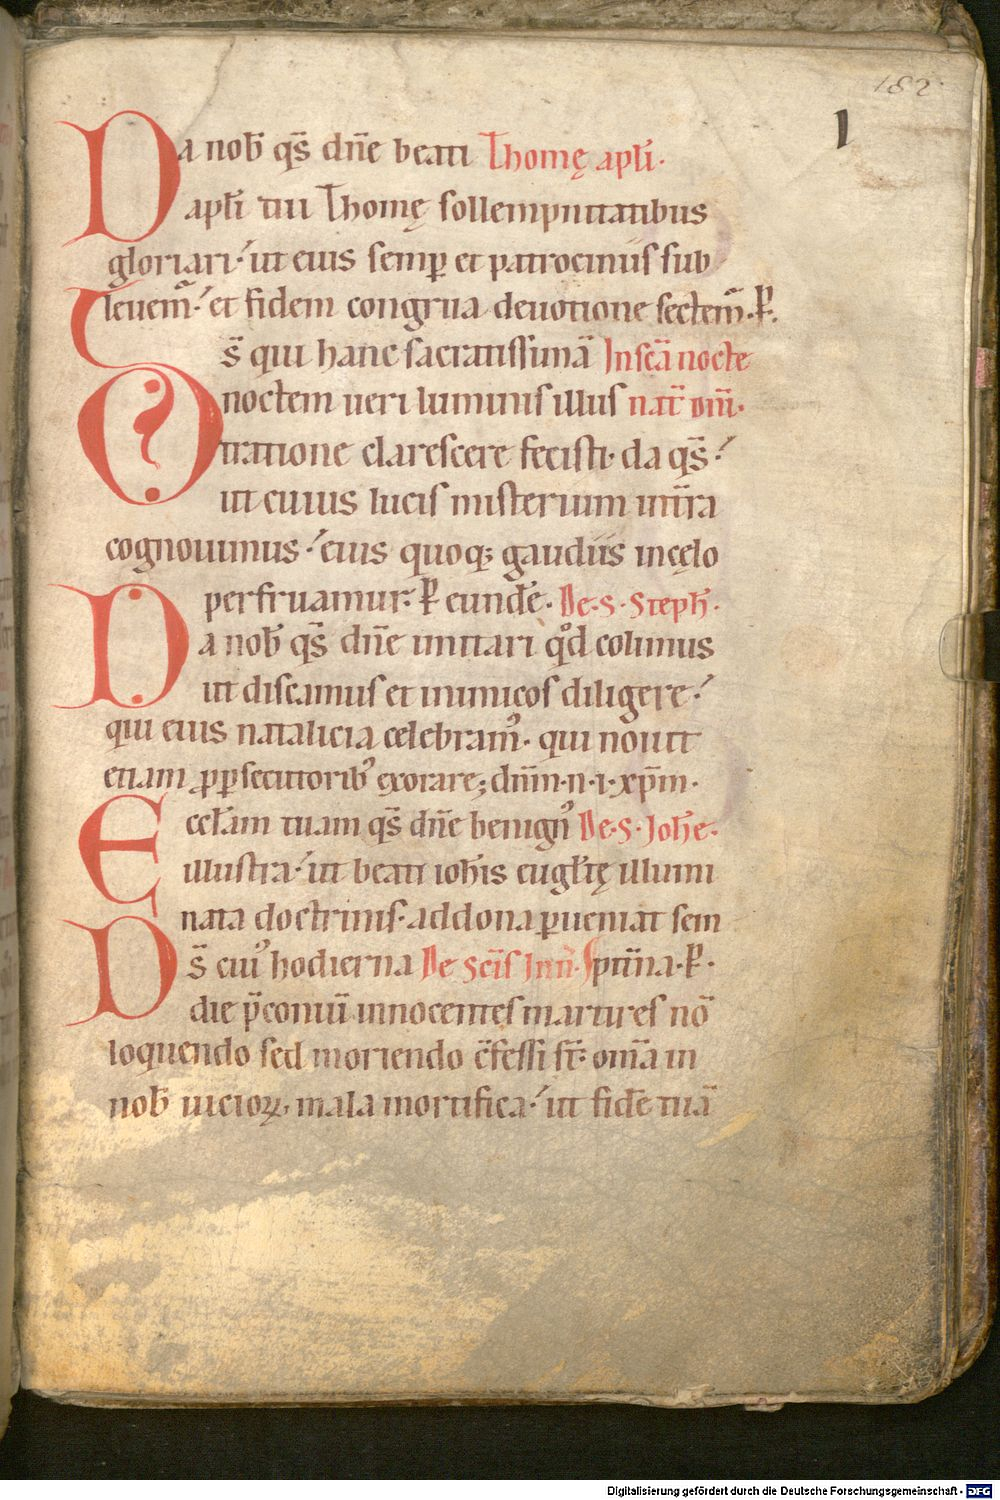 182
I
Da nob̄ qs̄ dn̄e beati Thomę apłi·
apłi tui Thomę sollempnitatibus
gloriari· ut eius semp̲ et patrociniis sub
leuem̄· et fidem congrua deuotione sectem̄·P̱·
Ds̄ qui hanc sacratissimā In sc̄a nocte
noctem ueri luminis illus nat̄ dn̄i·
tratione clarescere fecisti· da qs̄·
ut cuius lucis misterium in t̄ra
cognouimus· eius quoq; gaudiis in cęlo
perfruamur· P̱ eundē· De·S·Steph̄·
Da nob̄ qs̄ dn̄e imitari qd̊ colimus
ut discamus et inimicos diligere·
qui eius natalicia celebram᾽· qui nouit
etiam ꝓ p̲secutorib᾽ exorare; dn̄m·n·i·xp̄m·
Eccłam tuam qs̄ dn̄e benign᾽ De·S·Joh̄e·
illustra· ut beati ioh̄is eugłtę illumi
nata doctrinis· ad dona p̲ueniat sem
Ds̄ cui᾽ hodierna De Sc̄is Inn̄· Sptīna·P̱·
die p̄coniū innocentes martires nō
loquendo sed moriendo c̄fessi st̄· om̄a in
nob̄ uicioꝝ· mala mortifica· ut fidē tuā
Digitalisierung gefördert durch die Deutsche Forschungsgemeinschaft - DFG